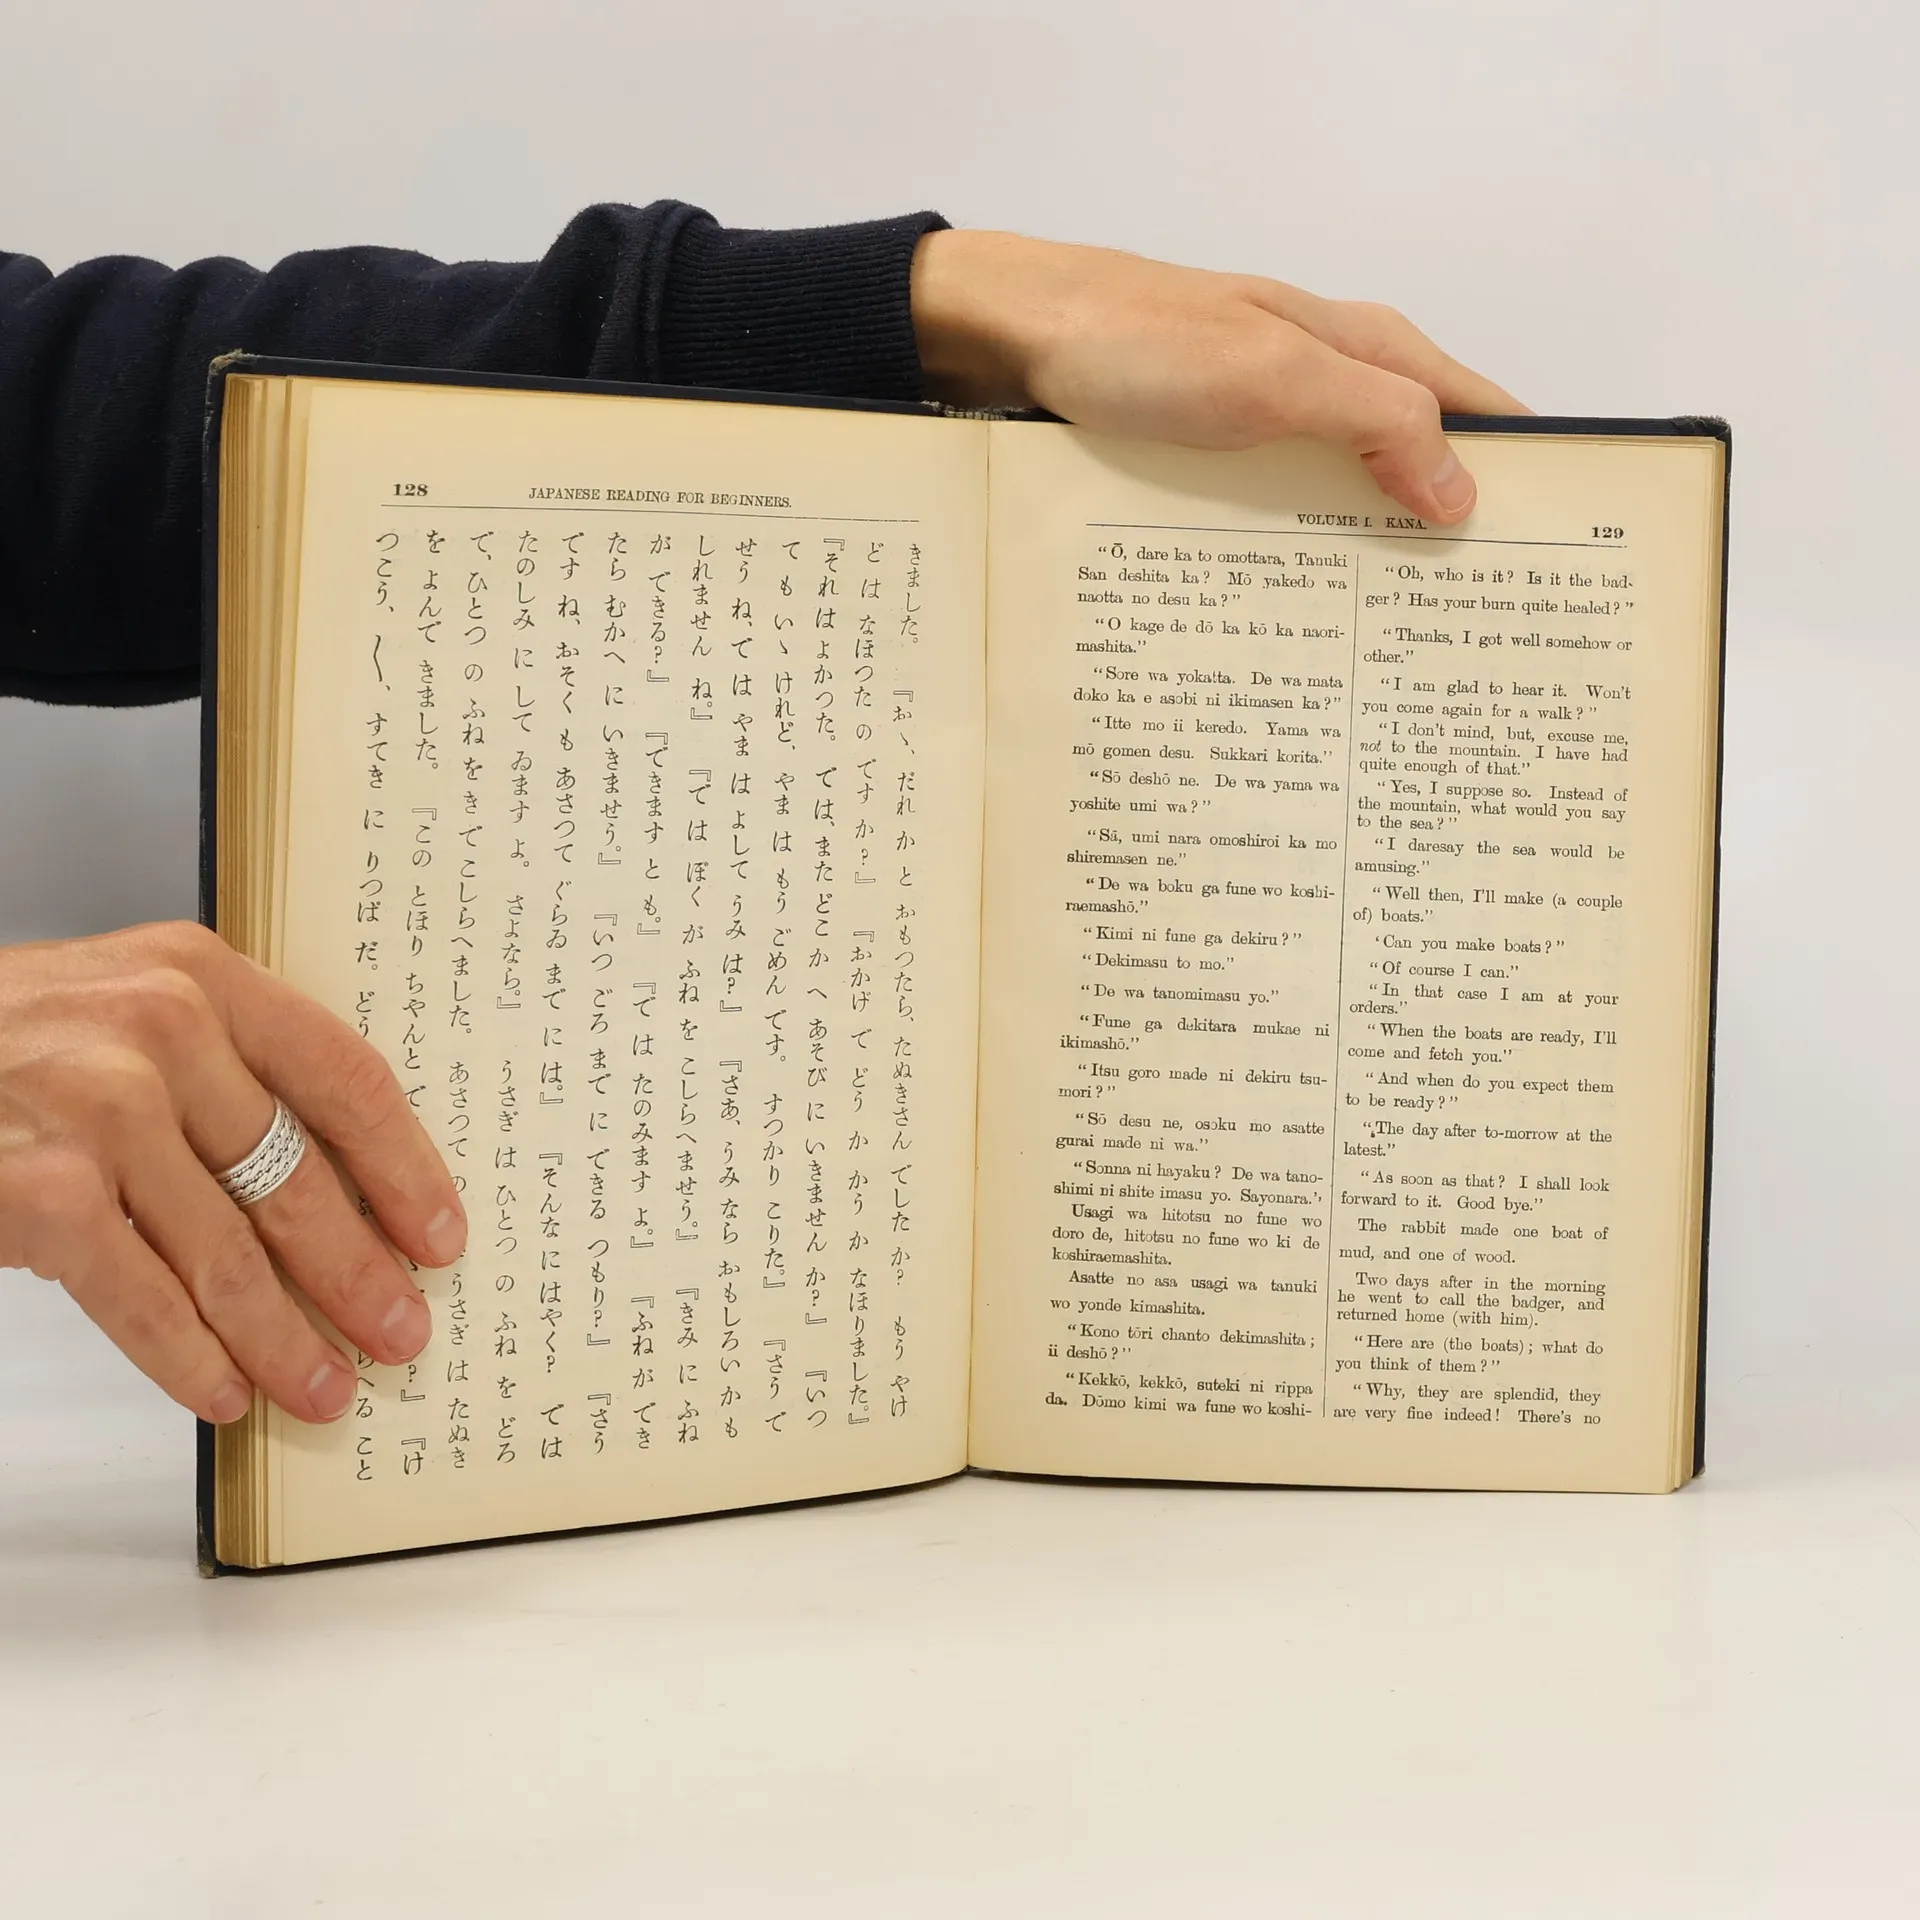 128
JAPANESE READING FOR BEGINNERS.
きました。 『おゝ、だれ か と おもつたら、たぬきさん でした か? もう やけ
ど は なほつた の です か?』 『おかげ で どう か かう か なほりました。』
『それ は よかつた。 では、また どこ か へ あそび に いきません か?』 『いつ
て も いゝ けれど、 やま は もう ごめん です。 すつかり こりた。』 『さう で
せう ね、では やま は よして うみ は?』 『さあ、うみ なら おもしろい か も
しれません ね。』 『では ぼく が ふね を こしらへませう。』 『きみ に ふね
が できる?』 『できます と も。』 『では たのみます よ。』 『ふね が でき
たら むかへ に いきませう。』 『いつ ごろ まで に できる つもり?』 『さう
です ね、おそく も あさつて ぐらゐ まで に は。』 『そんな に はやく? では
たのしみ に して ゐます よ。 さよなら。』 うさぎ は ひとつ の ふね を どろ
で、ひとつ の ふね を き で こしらへました。 あさつて の うさぎ は たぬき
を よんで きました。 『この とほり ちやんと ?』 『け
つこう、〳〵、すてき に りつぱ だ。 どう らへる こと
VOLUME I. KANA.
129
“Ō, dare ka to omottara, Tanuki
San deshita ka? Mō yakedo wa
naotta no desu ka?”
“O kage de dō ka kō ka naori-
mashita.”
“Sore wa yokatta. De wa mata
doko ka e asobi ni ikimasen ka?”
“Itte mo ii keredo. Yama wa
mō gomen desu. Sukkari korita.”
“Sō deshō ne. De wa yama wa
yoshite umi wa?”
“Sā, umi nara omoshiroi ka mo
shiremasen ne.”
“De wa boku ga fune wo koshi-
raemashō.”
“Kimi ni fune ga dekiru?”
“Dekimasu to mo.”
“De wa tanomimasu yo.”
“Fune ga dekitara mukae ni
ikimashō.”
“Itsu goro made ni dekiru tsu-
mori?”
“Sō desu ne, osoku mo asatte
gurai made ni wa.”
“Sonna ni hayaku? De wa tano-
shimi ni shite imasu yo. Sayonara.’,
Usagi wa hitotsu no fune wo
doro de, hitotsu no fune wo ki de
koshiraemashita.
Asatte no asa usagi wa tanuki
wo yonde kimashita.
“Kono tōri chanto dekimashita;
ii deshō?”
“Kekkō, kekkō, suteki ni rippa
da. Dōmo kimi wa fune wo koshi-
“Oh, who is it? Is it the bad-
ger? Has your burn quite healed?”
“Thanks, I got well somehow or
other.”
“I am glad to hear it. Won’t
you come again for a walk?”
“I don’t mind, but, excuse me,
not to the mountain. I have had
quite enough of that.”
“Yes, I suppose so. Instead of
the mountain, what would you say
to the sea?”
“I daresay the sea would be
amusing.”
“Well then, I’ll make (a couple
of) boats.”
‘Can you make boats?”
“Of course I can.”
“In that case I am at your
orders.”
“When the boats are ready, I’ll
come and fetch you.”
“And when do you expect them
to be ready?”
“The day after to-morrow at the
latest.”
“As soon as that? I shall look
forward to it. Good bye.”
The rabbit made one boat of
mud, and one of wood.
Two days after in the morning
he went to call the badger, and
returned home (with him).
“Here are (the boats); what do
you think of them?”
“Why, they are splendid, they
are very fine indeed! There’s no